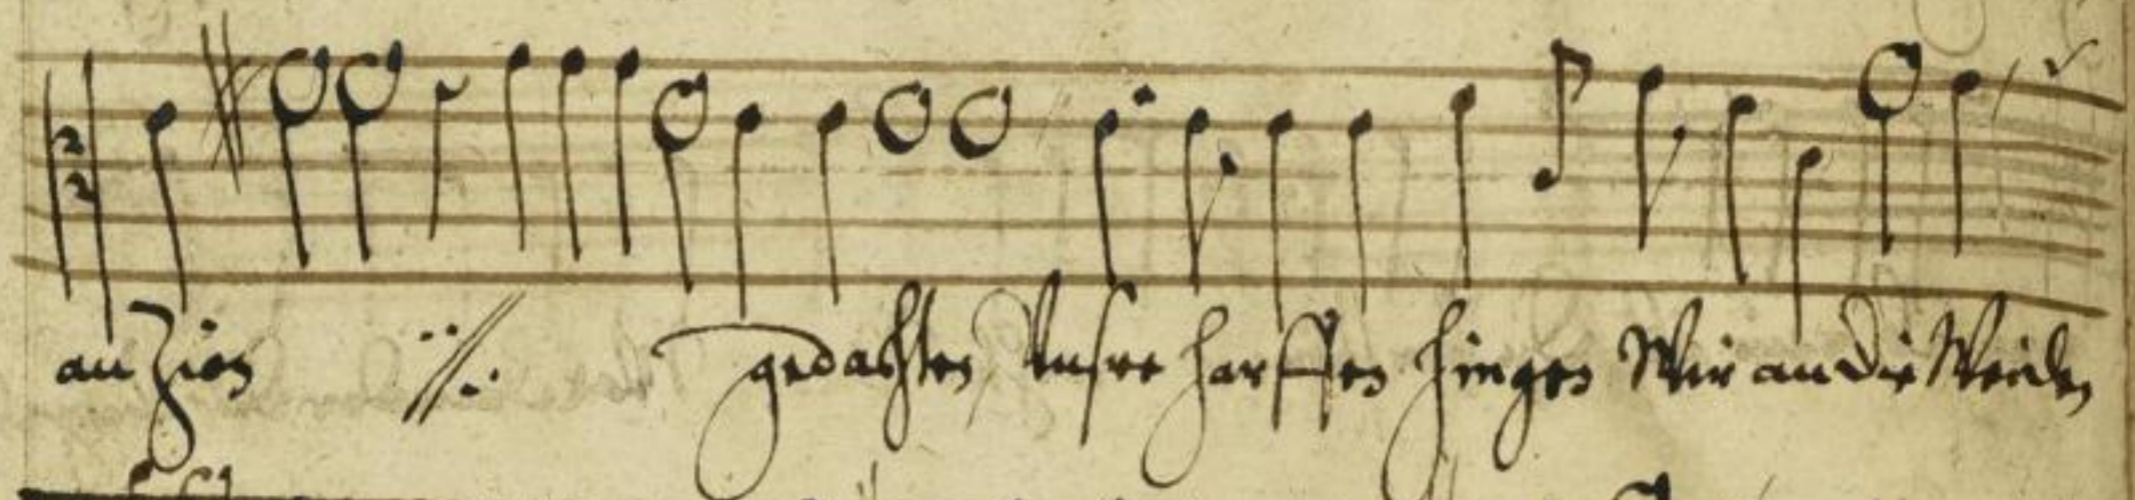 an Zion :/: gedachten Unsre harffen hingen Wir an die Weiden